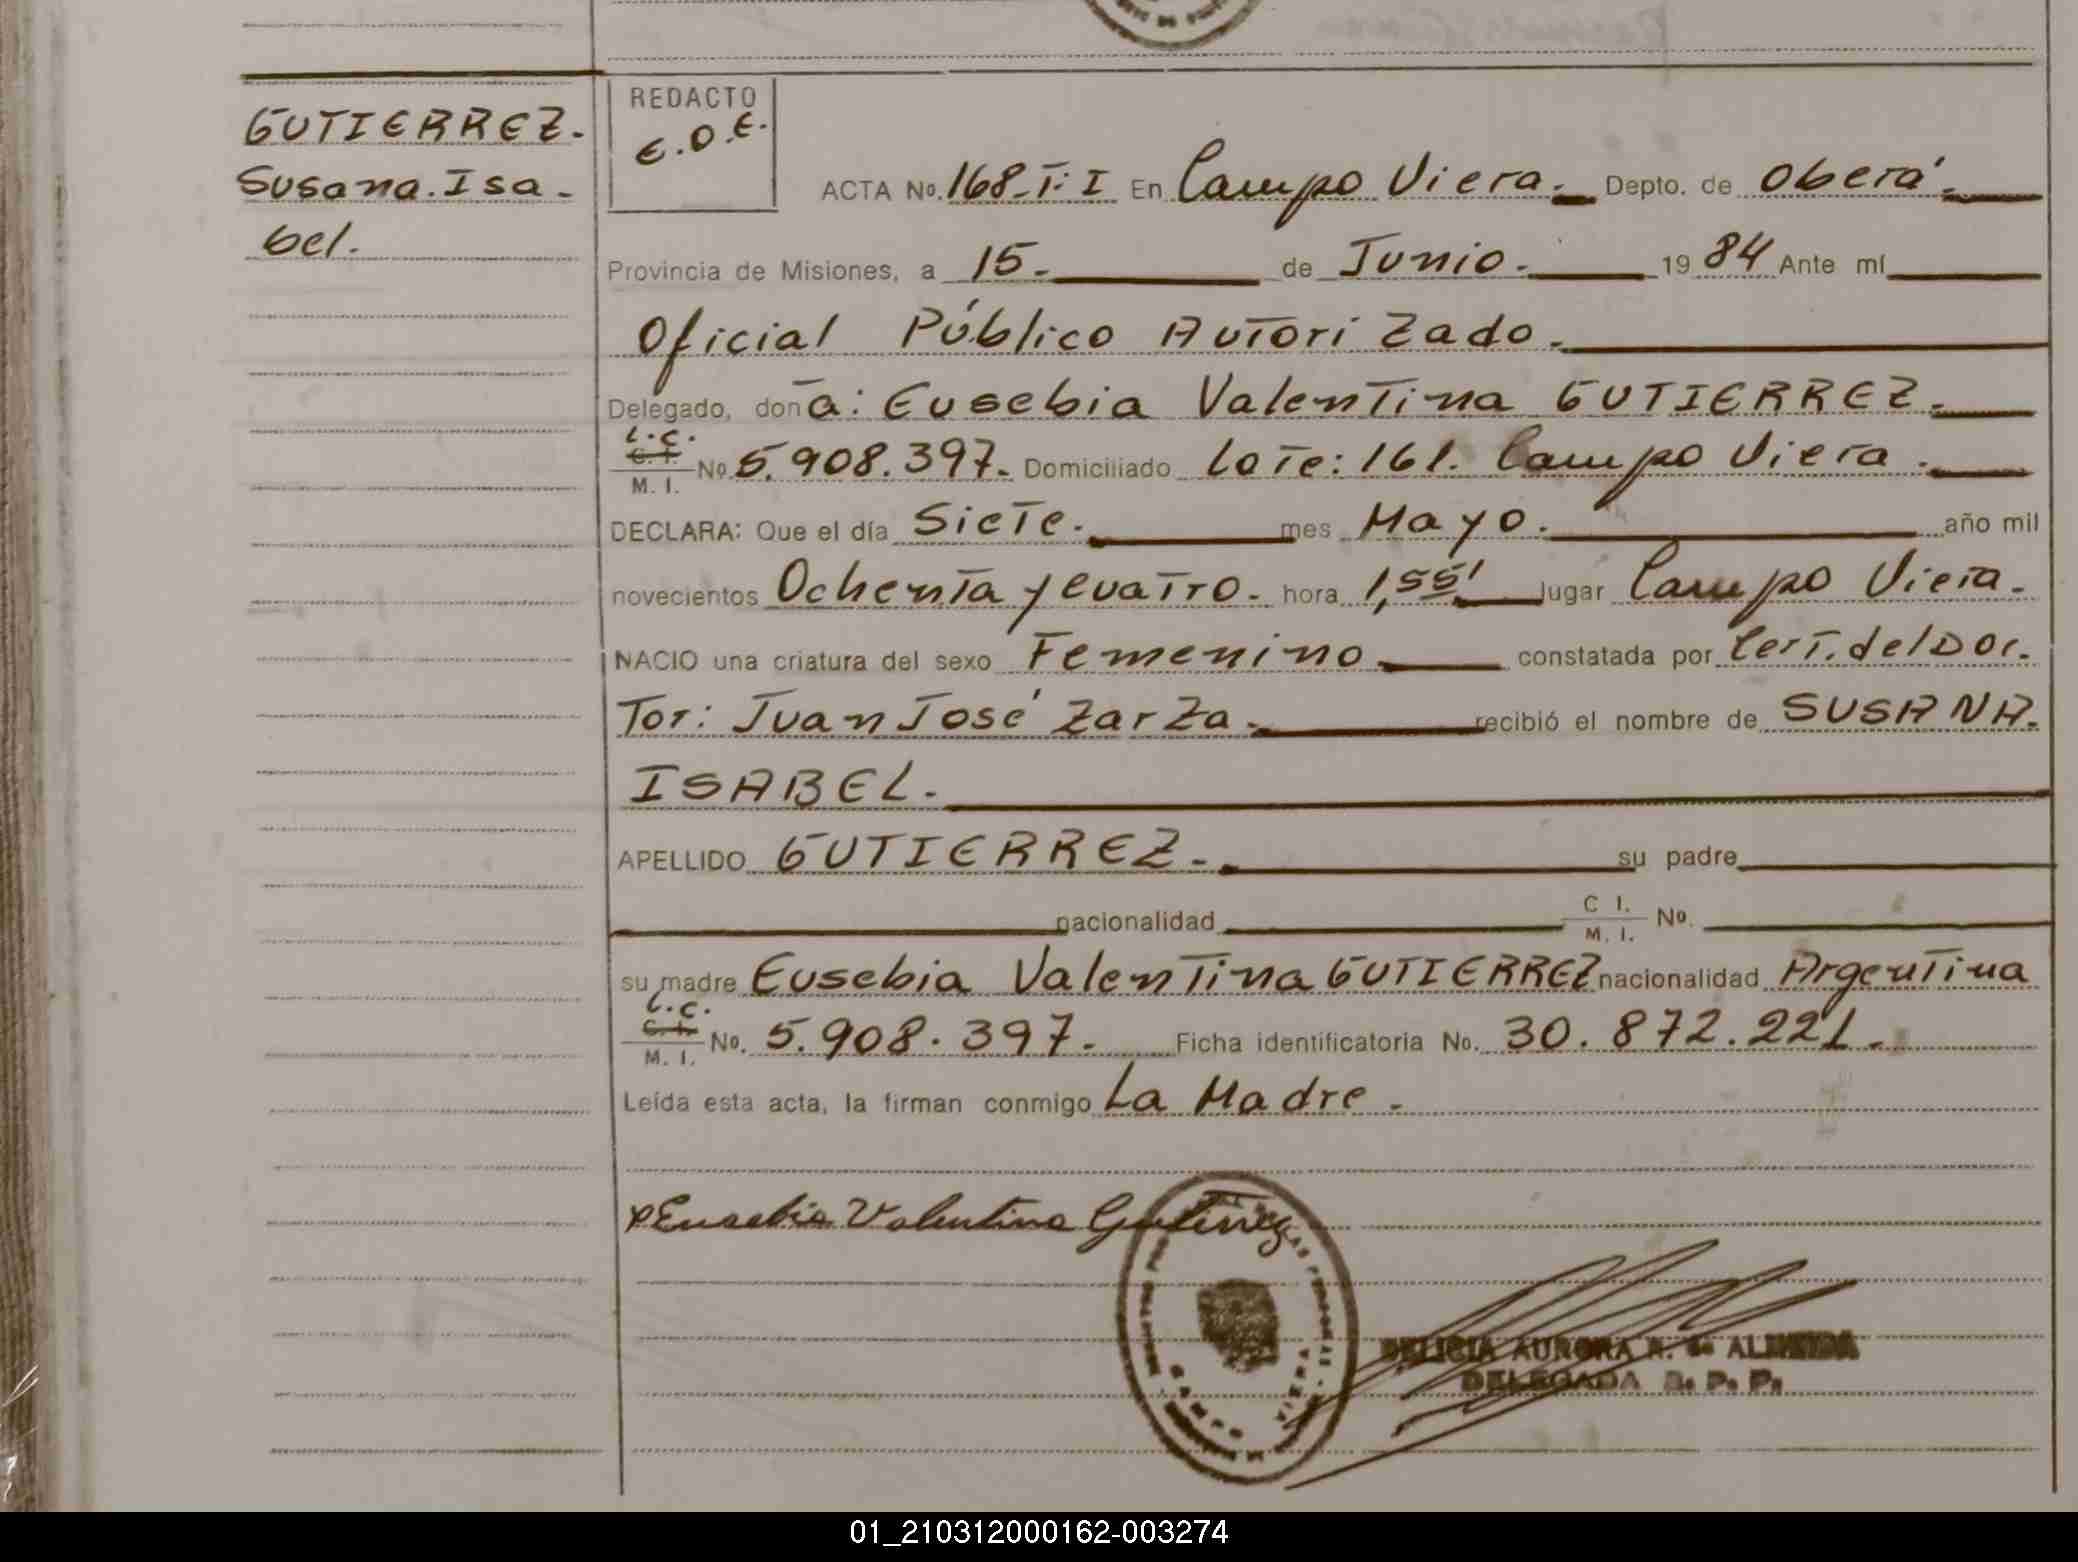 GUTIERREZ.
Susana.Isa-
bel.
REDACTO
E.O.E.
ACTA No. 168-T:I En Campo Viera. Depto. de Oberá.
Provincia de Misiones, a 15. de Junio. 1984 Ante mí
Oficial Público Autorizado.
Delegado, doña: Eusebia Valentina GUTIERREZ.
L.C.
C. I.
M. I.
No. 5.908.397. Domiciliado Lote: 161. Campo Viera.
DECLARA: Que el día Siete. mes Mayo. año mil
novecientos Ochenta y cuatro. hora 1,55' lugar Campo Viera.
NACIO una criatura del sexo Femenino constatada por Cert. del Doc.
Tor: Juan José Zarza. recibió el nombre de SUSANA.
ISABEL.
APELLIDO GUTIERREZ. su padre
nacionalidad C I. M. I. No.
su madre Eusebia Valentina GUTIERREZ nacionalidad Argentina
L.C.
C. I.
M. I.
No. 5.908.397. Ficha identificatoria No. 30.872.221.
Leída esta acta, la firman conmigo La Madre.
Eusebia Valentina Gutierrez
DELICIA AURORA R. de ALMEIDA
DELEGADA R. P. P.
01_210312000162-003274